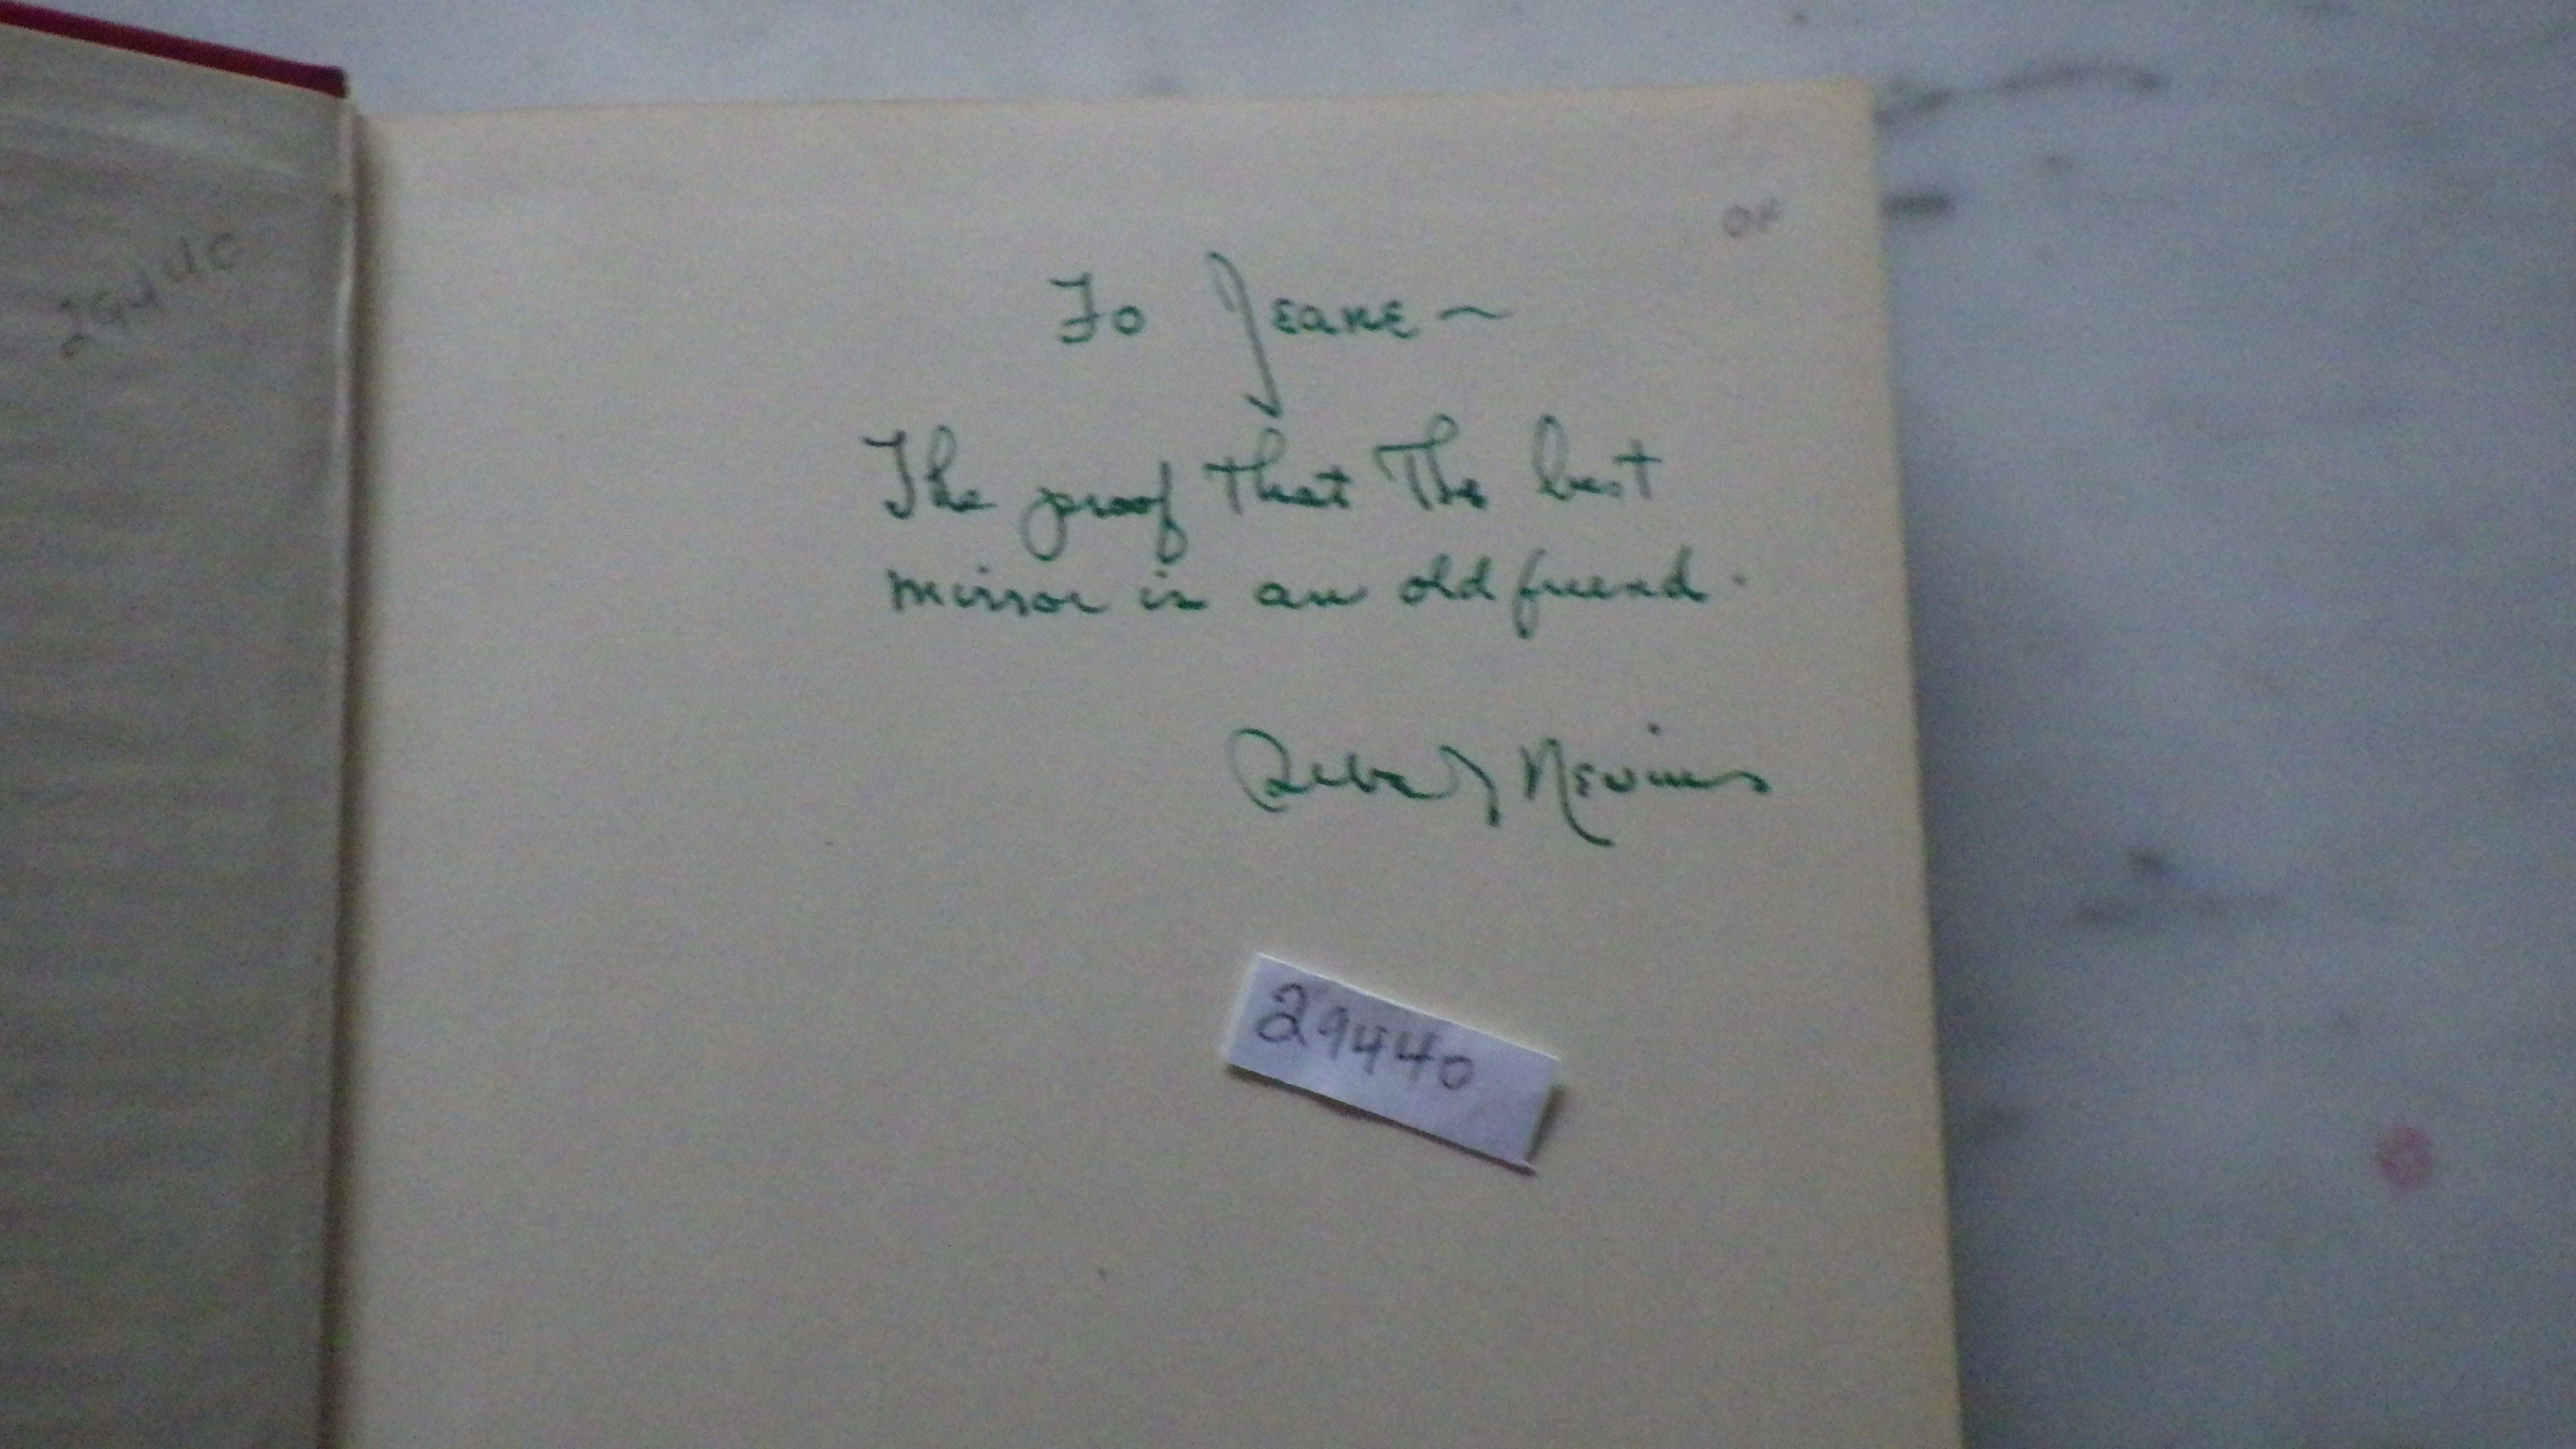 29440
OK
To Jeane ~
The proof that The best
mirror is an old friend.
Reba J Nevins
29440